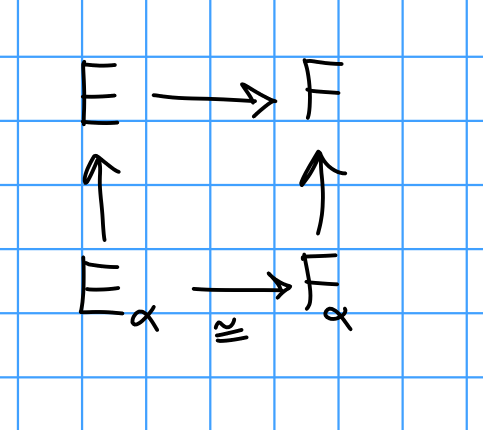 E → F
↑ ↑
E_α → F_α
≅